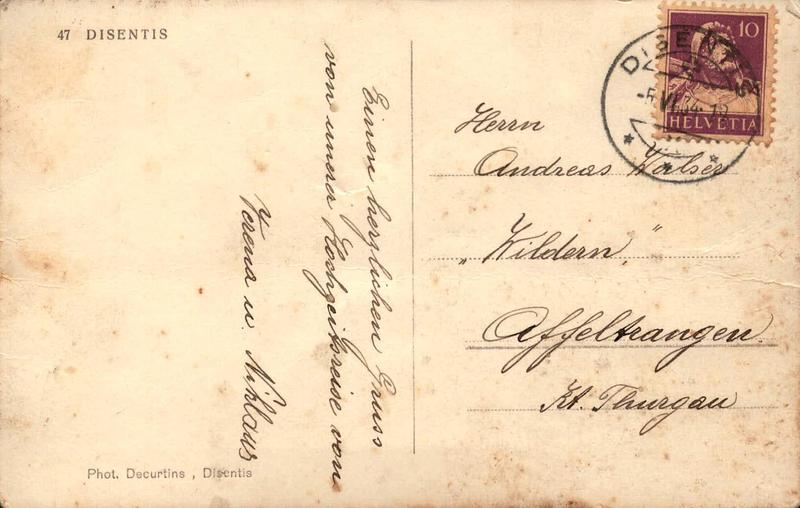 47 DISENTIS
Einen herzlichen Gruss
von unserer Hochzeitsreise von
Verena u. Niklaus
Phot. Decurtins , Disentis
10
HELVETIA
DISENTIS
-5.VI.34-18
Herrn
Andreas Walser
„Wildern“
Affeltrangen.
Kt. Thurgau